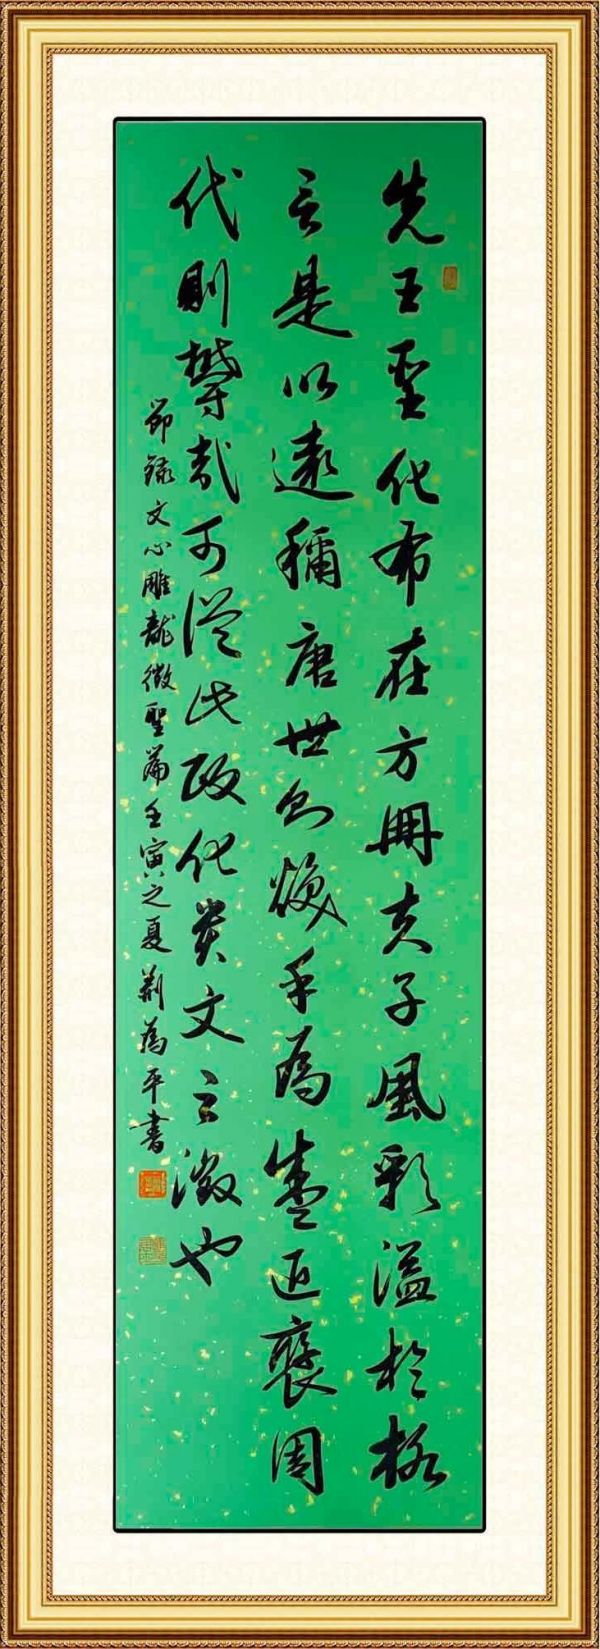 先王聖化布在方冊夫子風彩溢於格
言是以遠稱唐世則煥乎為盛近襃周
代則鬱哉可從此政化貴文之徵也
節錄文心雕龍徵聖篇壬寅之夏荆為平書